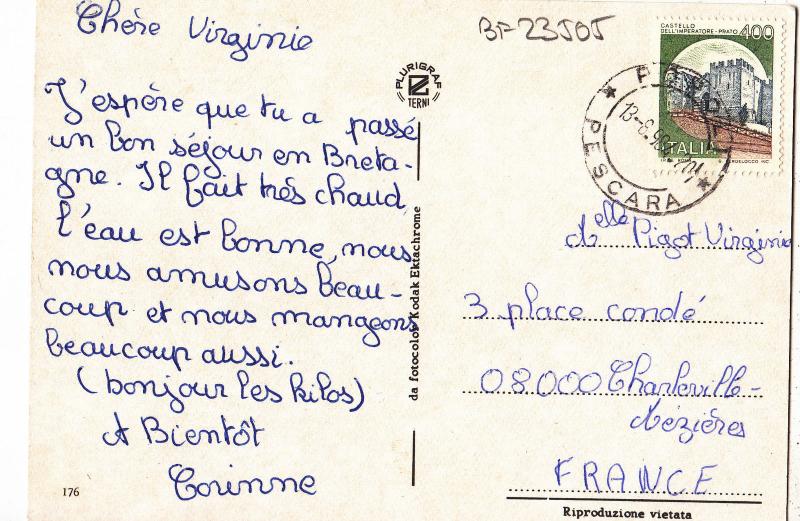 Chère Virginie
J'espère que tu a passé
un bon séjour en Breta-
gne. Il fait très chaud
l'eau est bonne, nous
nous amusons beau-
coup et nous mangeons
beaucoup aussi.
(bonjour les kilos)
A Bientôt
Corinne
176
PLURIGRAF
TERNI
da fotocolor Kodak Ektachrome
BF-23505
CASTELLO
DELL'IMPERATORE-PRATO
400
ITALIA
PESCARA
Melle Pigot Virginie
3 place condé
08000 Charleville-
Mézières
FRANCE
Riproduzione vietata